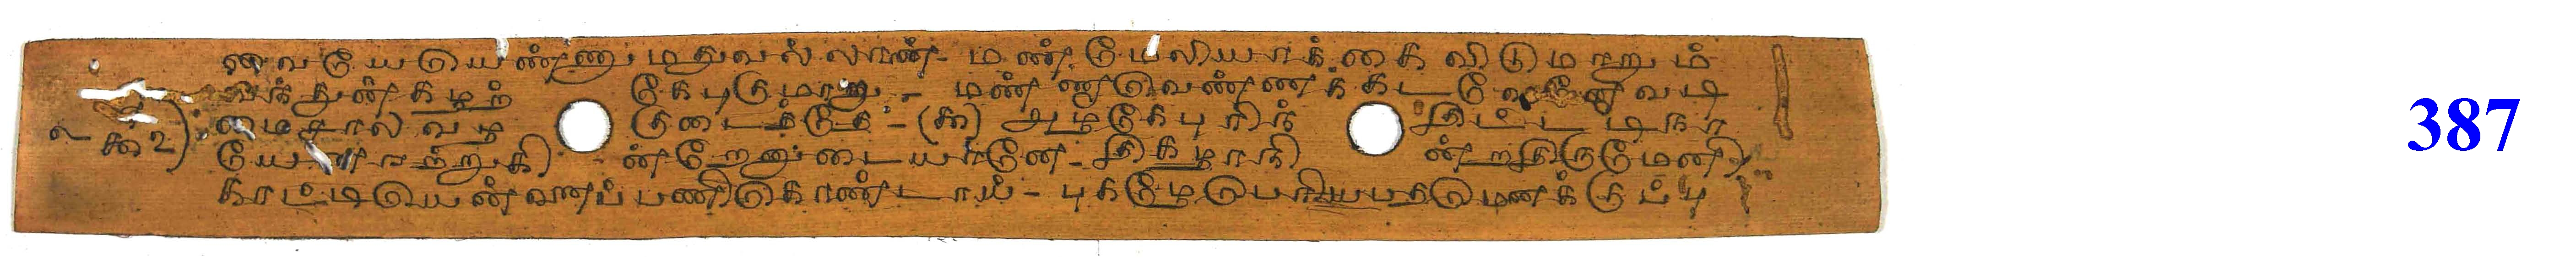 வையேயெண்ணு மதுவல்லாண் - மண்மேலியாக்கை விடுமாறும்
வந்துன்கழற் கேபுகுமாறு - மண்ணவெண்ண க்கட வடி
மைசால வழ குடைத்தே - (௯) அழகேபுரிந் திட்ட டிநா
யே ரற்றுகி ன்றேனுடையானே - திகழாநி ன்றதிருமேனி
காட்டியென்னைப்பணிகொண்டாய் - புகழேபெரியபதமெனக்குப்பு
387